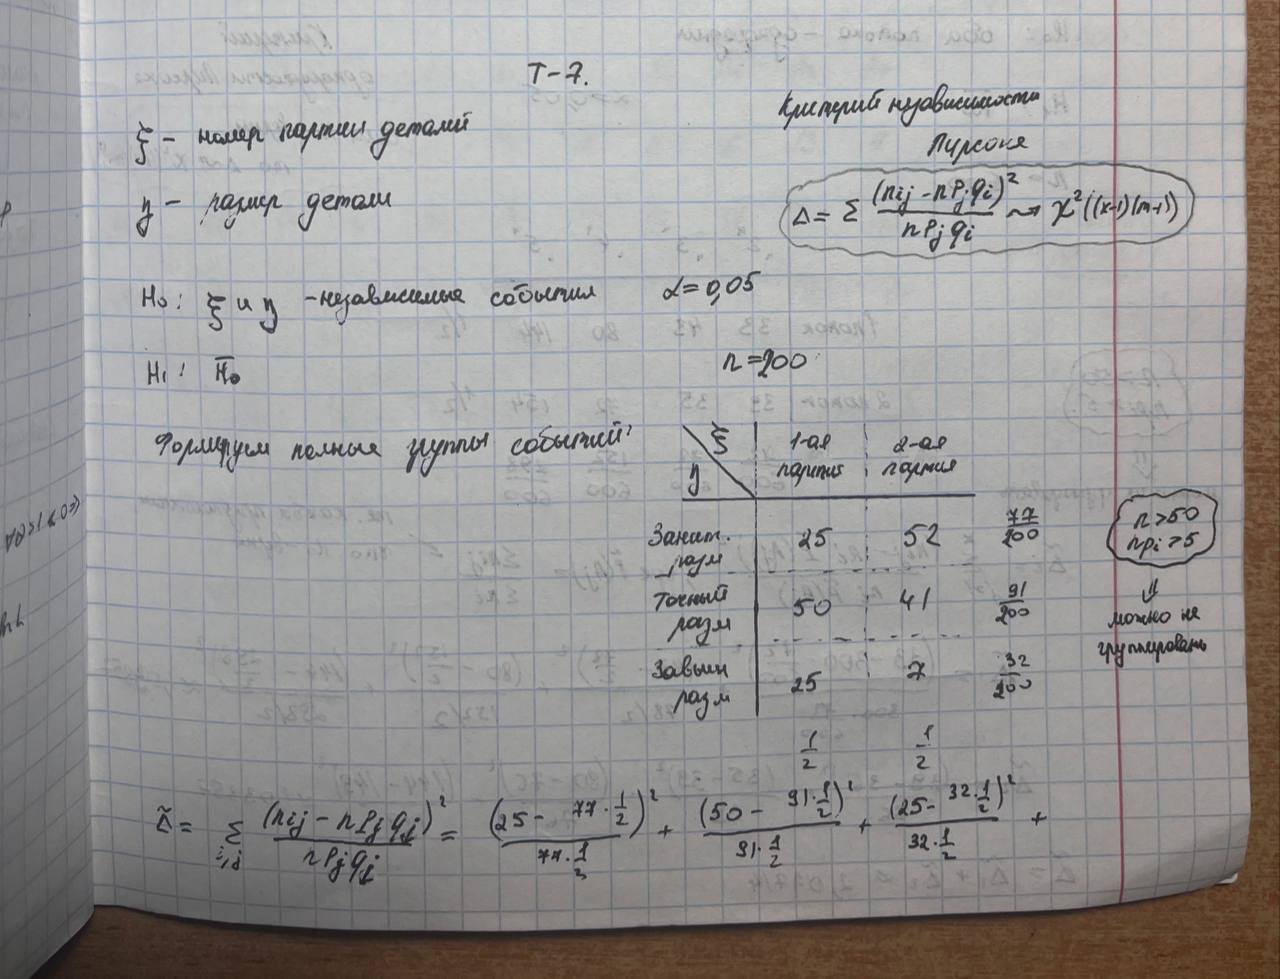 Т-7.
ξ - номер партии деталей
η - размер детали
Критерий независимости
Пирсона
Δ = Σ (nij - nPjqi)² / nPjqi ⇝ χ²((k-1)(m-1))
H₀: ξ и η - независимые события α=0,05
H₁: H̄₀
n=200
Формируем полные группы событий:
ξ 1-ая партия 2-ая партия
η
Заниж. разм 25 52 77/200
Точный разм 50 41 91/200
Завыш разм 25 7 32/200
1/2 1/2
n>50
npi>5
⇓
можно не
группировать
Δ̃ = Σ i,j (nij - nPjqj)² / nPjqj = (25 - 77·1/2)² / 77·1/2 + (50 - 91·1/2)² / 91·1/2 + (25 - 32·1/2)² / 32·1/2 +